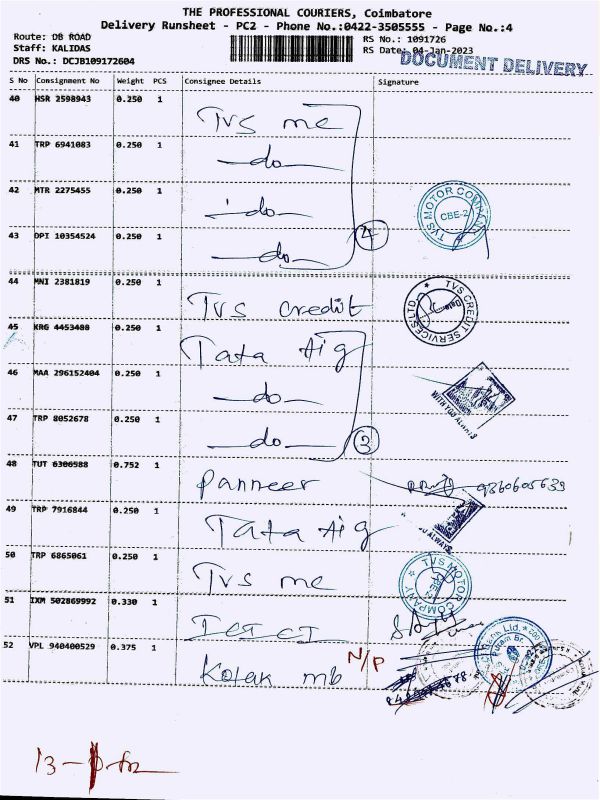 THE PROFESSIONAL COURIERS, Coimbatore
Delivery Runsheet - PC2 - Phone No.:0422-3505555 - Page No.:4
Route: DB ROAD
RS No.: 1091726
Staff: KALIDAS
RS Date: 04-Jan-2023
DRS No.: DCJB109172604
DOCUMENT DELIVERY
S No Consignment No Weight PCS Consignee Details Signature
40 HSR 2598943 0.250 1 TVS mc
41 TRP 6941083 0.250 1 —do—
42 MTR 2275455 0.250 1 —do—
TVS MOTOR COMPANY CBE-2
43 DPI 10354524 0.250 1 —do— 4
44 MNI 2381819 0.250 1 TVS credit
TVS CREDIT SERVICES LTD.
45 KRG 4453408 0.250 1 Tata Aig
46 MAA 296152404 0.250 1 —do—
WITH YOU ALWAYS
47 TRP 8052678 0.250 1 —do— 3
48 TUT 6306988 0.752 1 Panneer 9360605639
49 TRP 7916844 0.250 1 Tata Aig
ALWAYS
50 TRP 6865061 0.250 1 TVS mc
TVS MOTOR COMPANY
51 IXM 502869992 0.330 1 ICICI
Bank Ltd.
52 VPL 940400529 0.375 1 Kotak mb N/P